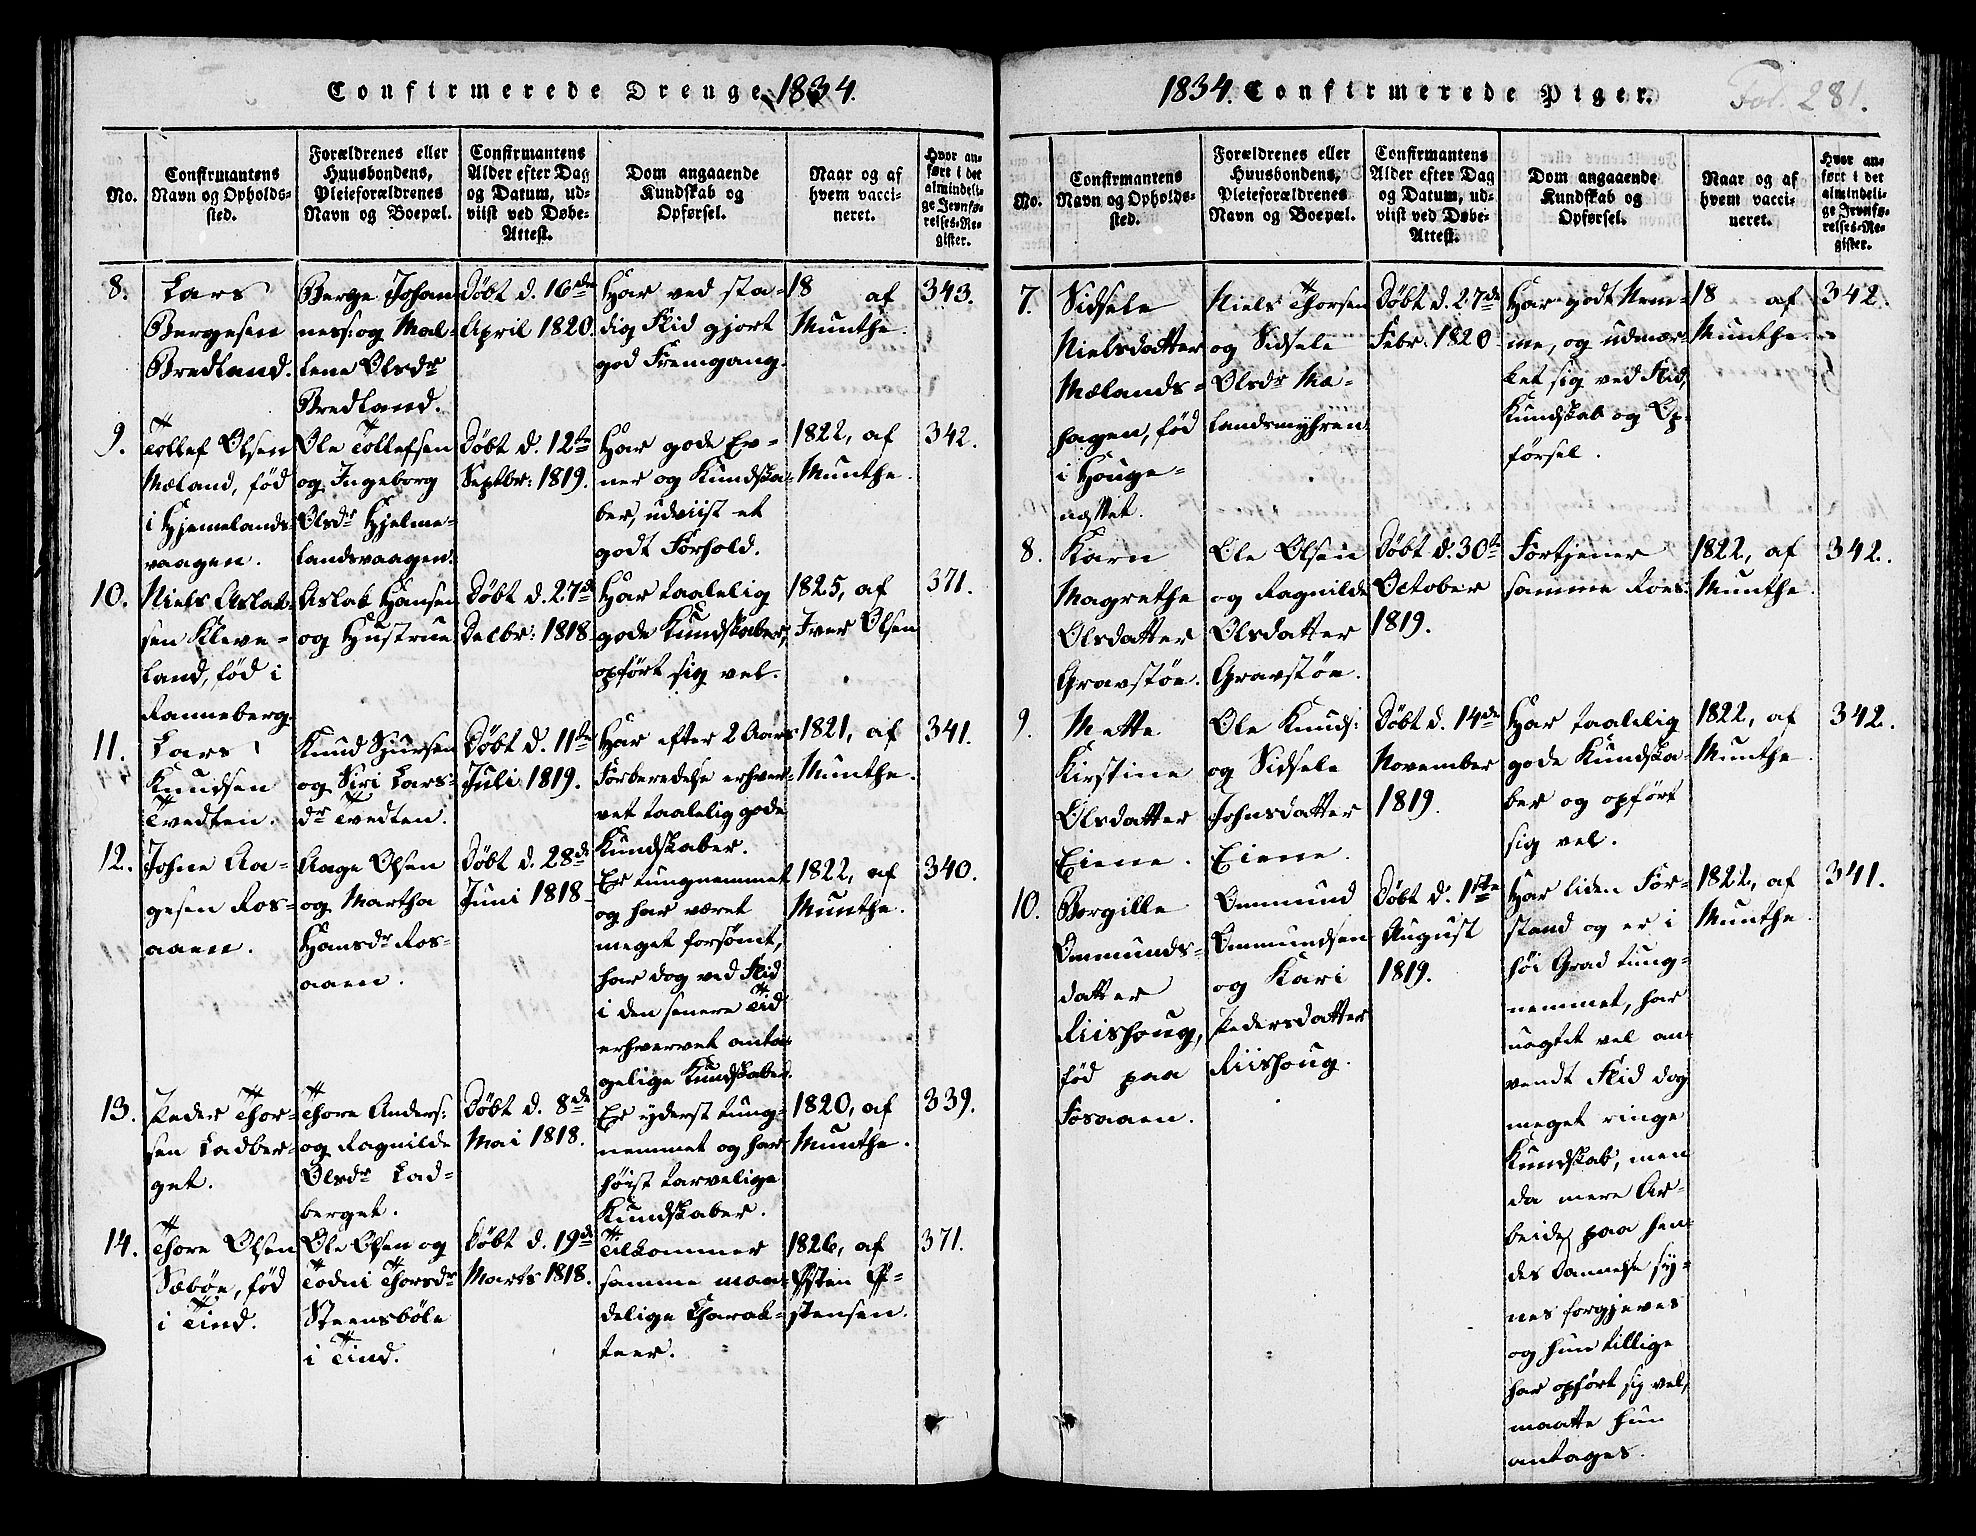 Confirmerede Drenge 1834.
No.
Confirmantens
Navn og Opholds-
sted.
Forældrenes eller
Huusbondens,
Pleieforældrenes
Navn og Boepæl.
Confirmantens
Alder efter Dag
og Datum, ud-
viist ved Døbe-
Attest.
Dom angaaende
Kundskab og
Opførsel.
Naar og af
hvem vacci-
neret.
Hvor an-
ført i det
almindeli-
ge Jevnfø-
relses-Re-
gister.
8.
Lars
Bergesen
Bredland.
Berge Johan
ness: og Mal-
lene Olsdr
Bredland.
Døbt d. 16de
April 1820.
Har ved sta-
dig Flid gjort
god Fremgang.
18 af
Munthe.
343.
9.
Tollef Olsen
Mæland, fød
i Hjemelands-
vaagen.
Ole Tollefsen
og Ingeborg
Olsdr Hjelme-
landsvaagen.
Døbt d. 12te
Septbr: 1819.
Har gode Ev-
ner og Kundska-
ber, udviist et
godt Forhold.
1822, af
Munthe.
342.
10.
Niels Aslak-
sen Kleve-
land, fød i
Ranneberg.
Aslak Hansen
og Hustrue
Døbt d. 27de
Decbr: 1818
Har taalelig
gode Kundskaber,
opført sig vel.
1825, af
Iver Olsen
371.
11.
Lars
Knudsen
Tvedten.
Knud Sjursen
og Siri Lars-
dr Tvedten.
Døbt d. 11te
Juli 1819.
Har efter 2 Aars
Forberedelse erhver-
vet taalelig gode
Kundskaber.
1821, af
Munthe.
341.
12.
Johne Aa-
gesen Ros-
aaen.
Aage Olsen
og Martha
Hansdr Ros-
aaen.
Døbt d. 28de
Juni 1818
Er tungnemmet
og har været
meget forsømt,
har dog ved Flid
i den senere Tid
erhvervet anta-
gelige Kundskaber.
1822, af
Munthe.
340.
13.
Peder Thor-
sen Ladber-
get.
Thore Anders:
og Ragnilde
Olsdr Lad-
berget.
Døbt d. 8de
Mai 1818.
Er yderst tung-
nemmet og har
høist tarvelige
Kundskaber.
1820, af
Munthe.
339.
14.
Thore Olsen
Sæbøe, fød
i Tind.
Ole Olsen og
Todni Thorsdr
Steensbøle
i Tind.
Døbt d. 19de
Marts 1818.
Tilkommer
samme maa-
delige Charak-
teer.
1826, af
Østen Ø-
stensen.
371.
1834. Confirmerede Piger.
Fol. 281.
No.
Confirmantens
Navn og Opholds-
sted.
Forældrenes eller
Huusbondens,
Pleieforældrenes
Navn og Boepæl.
Confirmantens
Alder efter Dag
og Datum, ud-
viist ved Døbe-
Attest.
Dom angaaende
Kundskab og
Opførsel.
Naar og af
hvem vacci-
neret.
Hvor an-
ført i det
almindeli-
ge Jevnfø-
relses-Re-
gister.
7.
Sidsele
Nielsdatter
Mælands-
hagen, fød
i Houge-
næsset.
Niels Thorsen
og Sidsele
Olsdr Mæ-
landsmyhren
Døbt d. 27de
Febr. 1820
Har godt Nem-
me, og udmær-
ket sig ved Flid,
Kundskab og Op-
førsel.
18 af
Munthe.
342.
8.
Karn
Magrethe
Olsdatter
Gravstøe.
Ole Olsen
og Ragnilde
Olsdatter
Gravstøe.
Døbt d. 30te
October
1819.
Fortjener
samme Roes.
1822, af
Munthe.
342.
9.
Mette
Kirstine
Olsdatter
Eiene.
Ole Knuds:
og Sidsele
Johnsdatter
Eiene.
Døbt d. 14de
November
1819.
Har taalelig
gode Kundska-
ber og opført
sig vel.
1822, af
Munthe.
342.
10.
Borgille
Ommunds-
datter
Riishoug,
fød paa
Fosaaen.
Ommund
Ommundsen
og Kari
Pedersdatter
Riishoug.
Døbt d. 1ste
August
1819.
Har liden For-
stand og er i
høi Grad tung-
nemmet, har
uagtet vel an-
vendt Flid dog
meget ringe
Kundskab, men
da mere Ar-
beide paa hen-
des Dannelse sy-
nes forgjeves
og hun tillige
har opført sig vel,
maatte hun
antages.
1822, af
Munthe.
341.